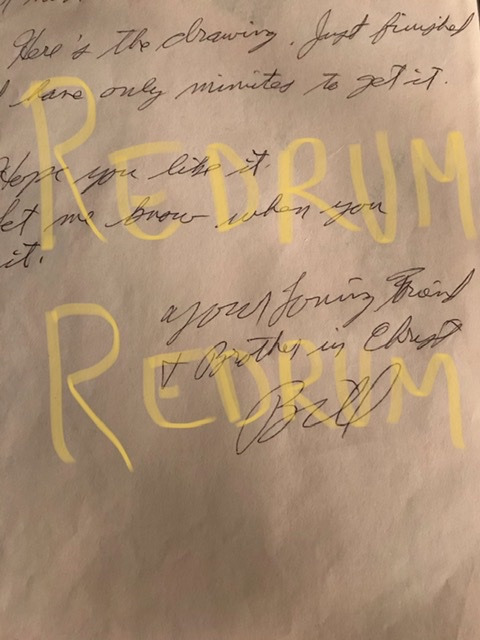 Here's the drawing. Just finished
have only minutes to get it.
REDRUM
Hope you like it.
let me know when you
it.
your Loving Friend
+ Brother in Christ
REDRUM
Bill